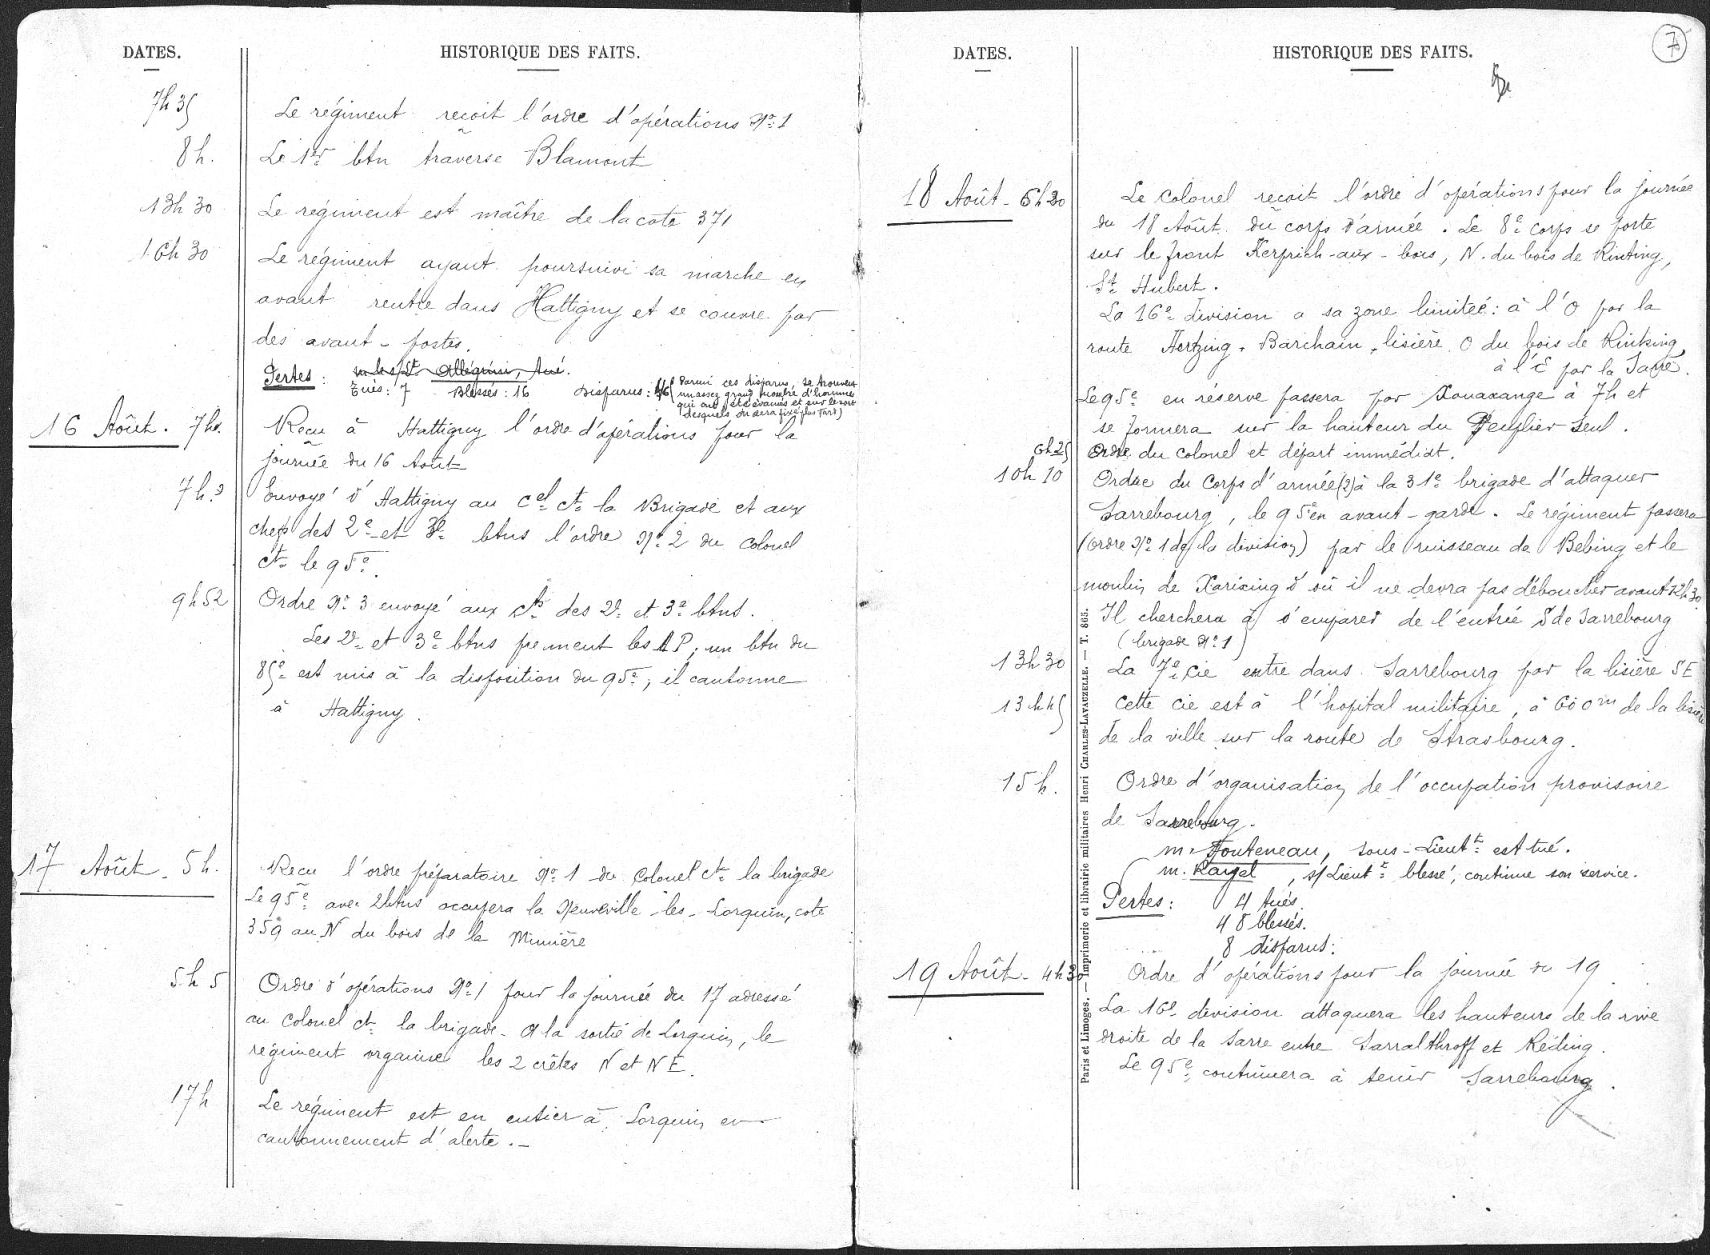 DATES.
HISTORIQUE DES FAITS.
7h35 Le régiment reçoit l'ordre d'opérations No 1
8h. Le 1er btn traverse Blamont
13h30 Le régiment est maître de la cote 371
16h30 Le régiment ayant poursuivi sa marche en
avant rentre dans Hattigny et se couvre par
des avant-postes.
Pertes : Allégrini, tué.
Tués : 7 Blessés : 16 Disparus : (Parmi ces disparus, se trouvent
un assez grand nombre d'hommes
qui ont été évacués et sur le sort
desquels on sera fixé plus tard)
16 Août. 7h. Reçu à Hattigny l'ordre d'opérations pour la
journée du 16 Août
7h. Envoyé d'Hattigny au Cel Ct la Brigade et aux
chefs des 2e et 3e btns l'ordre No 2 du Colonel
Ct le 95e.
9h52 Ordre No 3 envoyé aux Cts des 2e et 3e btns.
Les 2e et 3e btns prennent les AP ; un btn du
85e est mis à la disposition du 95e, il cantonne
à Hattigny.
17 Août. 5h. Reçu l'ordre préparatoire No 1 du Colonel Ct la brigade
Le 95e avec 2 btns occupera la Neuveville-les-Lorquin, cote
359 au N du bois de la Minière
5h5 Ordre d'opérations No 1 pour la journée du 17 adressé
au Colonel Ct la brigade. A la sortie de Lorquin, le
régiment organise les 2 crêtes N et NE.
17h Le régiment est en entier à Lorquin en
cantonnement d'alerte.
DATES.
HISTORIQUE DES FAITS.
7
18 Août - 6h20 Le Colonel reçoit l'ordre d'opérations pour la journée
du 18 Août du corps d'armée. Le 8e corps se porte
sur le front Kerprich-aux-bois, N. du bois de Rinting,
St Hubert.
La 16e division a sa zone limitée : à l'O par la
route Hertzing, Barchain, lisière O du bois de Rinking,
à l'E par la Sarre.
Le 95e en réserve passera par Xouaxange à 7h et
se formera sur la hauteur du Peuplier Seul.
6h25 Ordre du colonel et départ immédiat.
10h10 Ordre du Corps d'armée (?) à la 31e brigade d'attaquer
Sarrebourg, le 95e en avant-garde. Le régiment passera
(ordre No 1 de la division) par le ruisseau de Bebing et le
moulin de Xarixing d'où il ne devra pas déboucher avant 12h30.
Il cherchera à s'emparer de l'entrée S de Sarrebourg
(brigade No 1)
13h30 La 7e Cie entre dans Sarrebourg par la lisière SE
13h45 Cette cie est à l'hopital militaire, à 600m de la lisière
de la ville sur la route de Strasbourg.
15h. Ordre d'organisation de l'occupation provisoire
de Sarrebourg.
M. Fouteneau, sous-Lieutt est tué.
M. Raysel, s/Lieutt blessé, continue son service.
Pertes : 4 tués.
48 blessés.
8 disparus.
19 Août - 4h30 Ordre d'opérations pour la journée du 19.
La 16e division attaquera les hauteurs de la rive
droite de la Sarre entre Sarralthroff et Réding.
Le 95e continuera à tenir Sarrebourg.
Paris et Limoges. — Imprimerie et librairie militaires Henri CHARLES-LAVAUZELLE. — T. 865.